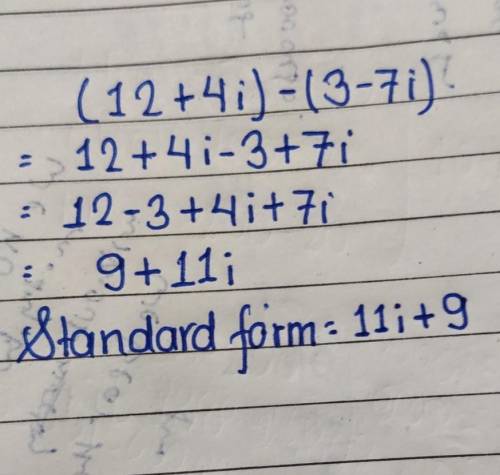 (12+4i)-(3-7i)
= 12+4i-3+7i
= 12-3+4i+7i
= 9+11i
Standard form= 11i+9